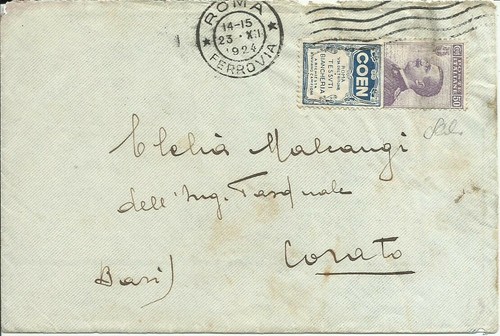 ROMA
14-15
23·XII
1924
FERROVIA
COEN
ROMA
TESSUTI
BIANCHERIA
50
Clelia Malcangi
dell'Ing. Pasquale
Corato
Bari)